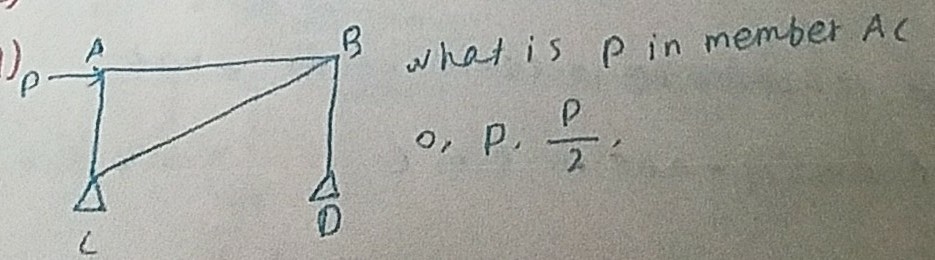 1)
P
A
B
what is P in member AC
0, P, P/2,
C
D